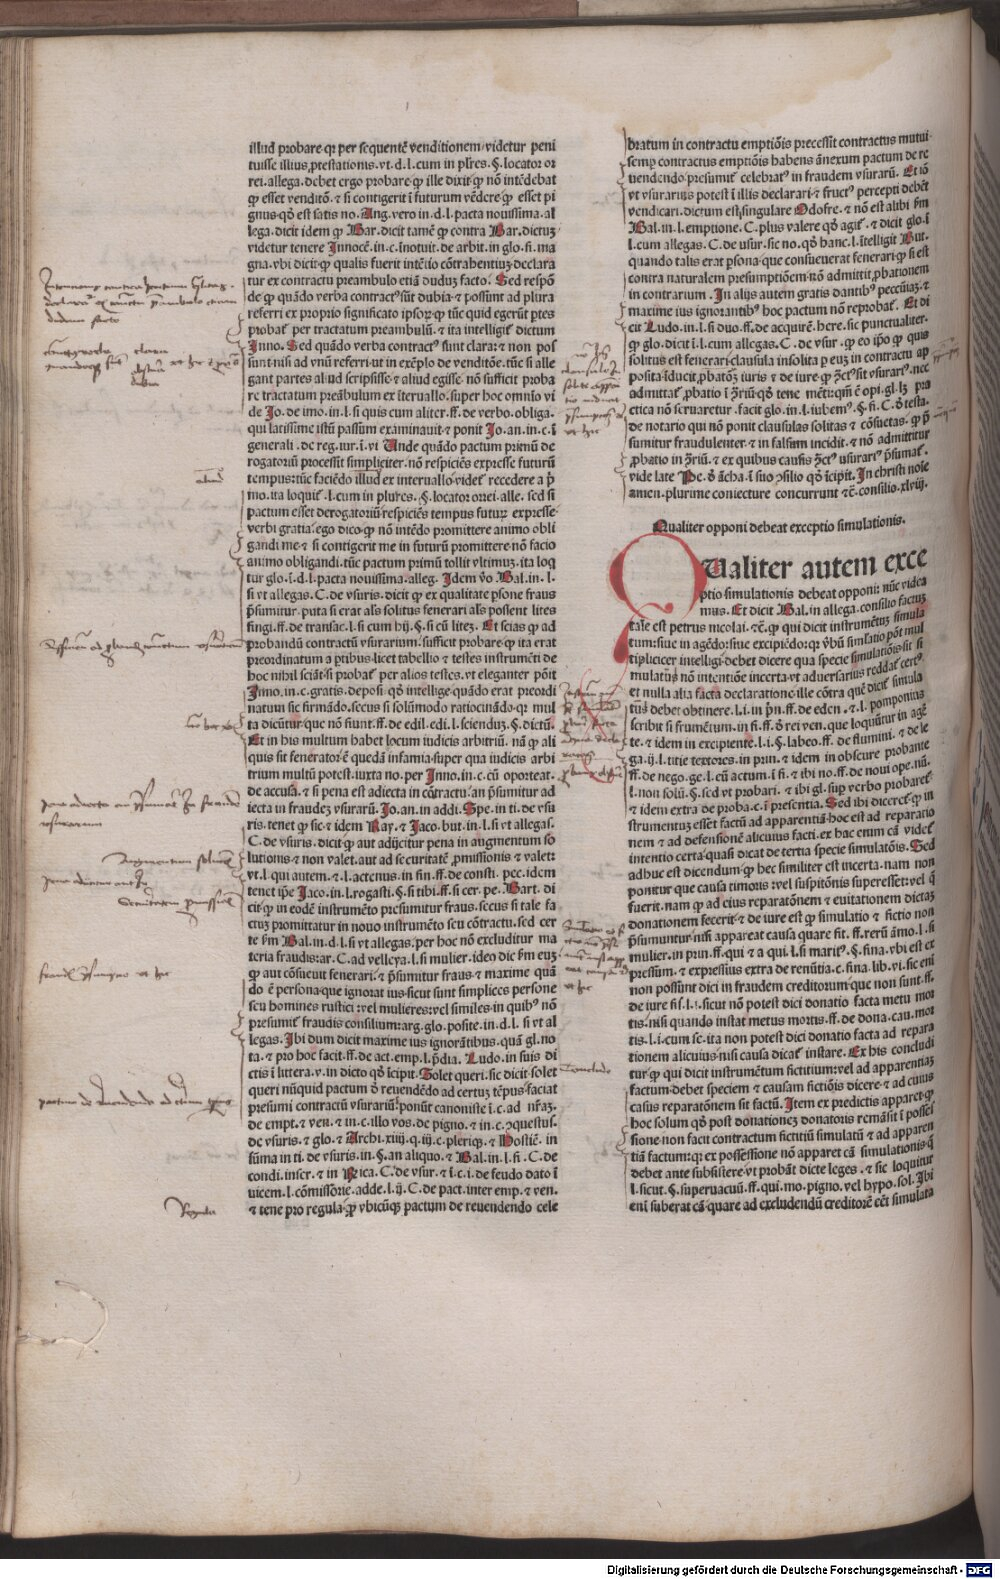 illud probare qꝛ per sequentē venditionem videtur peni
tuisse illius p̱testationis.vt.d.l.cum in pl̄res.§.locator or
rei.allega.debet ergo probare ꝙ ille dixit ꝙ nō intēdebat
ꝙ esset venditō.⁊ si contigerit ī futurum vēdere ꝙ esset pi
gnus.qđ est satis no. Ang. vero in.d.l.pacta nouissima.al
lega.dicit idem ꝙ Bar.dicit tamē ꝙ contra Bar.dictuꝫ
videtur tenere Innocē.in.c.īnotuit.de arbit.in glo.fi.ma
gna.vbi dicit ꝙ qualis fuerit intētio cōtrahentiuꝫ declara
tur ex contractu preambulo etiā duduꝫ facto. Sed respō
de ꝙ quādo verba contractꝰ sūt dubia ⁊ possunt ad plura
referri ex proprio significato ipsoꝝ ꝙ tūc quid egerūt ptes
probat̄ per tractatum preambulū.⁊ ita intelligit̄ dictum
Inno. Sed quādo verba contractꝰ sunt clara:⁊ non pos
sunt nisi ad vnū referri vt in exēplo de venditōe.tūc si alle
gant partes aliud scripsisse ⁊ aliud egisse.nō sufficit proba
re tractatum preābulum ex īteruallo.super hoc omnīo vi
de Jo.de imo.in.l.si quis cum aliter.ff.de verbo.obliga.
qui latissime istū passum examinauit ⁊ ponit Jo.an.in.c.ī
generali.de reg.iur.i.vi Unde quādo pactum primū de
rogatoriū processit simpliciter.nō respiciēs expresse futurū
tempus:tūc faciēdo illud ex interuallo videt̄ recedere a p̄
mo.ita loquit̄.l.cum in plures.§.locator orei.alle. sed si
pactum esset derogatoriū respiciēs tempus futuꝝ expresse
verbi gratia.ego dico ꝙ nō intēdo promittere animo obli
gandi me ⁊ si contigerit me in futurū promittere nō facio
animo obligandi.tūc pactum primū tollit vltimuꝫ.ita loq
tur glo.ī.d.l.pacta nouissima.alleg. Idem v̄o Bal.in.l.
si vt allegas.C.de vsuris.dicit ꝙ ex qualitate psone fraus
p̄sumitur.puta si erat als solitus fenerari als possent lites
fingi.ff.de transac.l.si cum hij.§.si cū liteꝫ. Et scias ꝙ ad
probandū contractū vsurarium sufficit probare ꝙ ita erat
preordinatum a ptibus licet tabellio ⁊ testes instrumēti de
hoc nihil sciāt.si probat̄ per alios testes.vt eleganter pōit
Inno.in.c.gratis.deposi.qđ intellige quādo erat preordi
natum sic firmādo.secus si solūmodo ratiocinādo qꝛ mul
ta dicūtur que nō fiunt.ff.de edil.edi.l.sciendum.§.dictū.
Et in his multum habet locum iudicis arbitriū. nā ꝙ ali
quis sit fenerator ē quedā infamia super qua iudicis arbi
trium multū potest.iuxta no.per Inno.in.c.cū oporteat.
de accusa.⁊ si pena est adiecta in cōtractu.an p̄sumitur ad
iecta in fraudeꝫ vsurarū. Jo.an.in addi. Spe.in ti.de vsu
ris.tenet ꝙ sic ⁊ idem Ray.⁊ Jaco.but.in.l.si vt allegas.
C.de vsuris.dicit ꝙ aut adijcitur pena in augmentum so
lutionis ⁊ non valet.aut ad securitatē p̱missionis ⁊ valet:
vt.l.qui autem.⁊.l.actenus.in fin.ff.de consti.pec.idem
tenet ip̄e Jaco.in.l.rogasti.§.si tibi.ff.si cer.pe. Bart.di
cit ꝙ in eodē instrumēto presumitur fraus.secus si tale fa
ctuꝫ promittatur in nouo instrumēto seu cōtractu.sed cer
te s̄m Bal.in.d.l.si vt allegas.per hoc nō excluditur ma
teria fraudis:ar.C.ad velleya.l.si mulier.ideo dic s̄m euꝫ
ꝙ aut cōsueuit fenerari.⁊ p̄sumitur fraus ⁊ maxime quā
do ē persona que ignorat ius.sicut sunt simplices persone
seu homines rustici:vel mulieres:vel similes in quibꝰ nō
presumit̄ fraudis consilium:arg.glo.posite.in.d.l.si vt al
legas. Ibi dum dicit maxime ius ignorātibus.quā gl.no
ta.⁊ pro hoc facit.ff.de act.emp.l.p̄dia. Ludo.in suis di
ctis ī littera.v.in dicto qđ īcipit. Solet queri.sic dicit solet
queri nūquid pactum đ reuendēdo ad certuꝫ tēpus faciat
presumi contractū vsurariū:ponūt canoniste ī.c.ad nr̄aꝫ.
de empt.⁊ ven.⁊ in.c.illo vos.de pigno.⁊ in.c.ꝯquestus.
de vsuris.⁊ glo.⁊ Archi.xiiij.q.iij.c.pleriqꝫ.⁊ Hostiē.in
sūma in ti.de vsuris.in.§.an aliquo.⁊ Bal.in.l.fi.C.de
condi.inser.⁊ in Rica.C.de vsur.⁊ ī.c.i.de feudo dato ī
vicem.l.cōmissorie.adde.l.ij.C.de pact.inter emp.⁊ ven.
⁊ tene pro regula ꝙ vbicūqꝫ pactum de reuendendo cele
bratum in contractu emptiōis precessit contractus mutui
semp contractus emptiōis habens ānexum pactum de re
uendendo presumit̄ celebratꝰ in fraudem vsurarū. Et iō
vt vsurarius potest ī illis declarari ⁊ fructꝰ percepti debēt
vendicari.dictum est singulare Odofre.⁊ nō est alibi s̄m
Bal.in.l.emptione.C.plus valere qđ agit̄.⁊ dicit glo.ī
l.cum allegas.C.de vsur.sic no.qđ hanc.l.ītelligit But.
quando talis erat psona que consueuerat fenerari ꝙ si est
contra naturalem presumptiōem nō admittit p̱bationem
in contrarium. In alijs autem gratis dantibꝰ pecūiaꝫ ⁊
maxime ius ignorantibꝰ hoc pactum nō reprobat̄. Et di
cit Ludo.in.l.si duo.ff.de acquirē.here.sic punctualiter.
ꝙ glo.dicit ī.l.cum allegas.C.de vsur.ꝙ eo ip̄o ꝙ quis
solitus est fenerari clausula insolita p euꝫ in contractu ap
posita īducit p̱batōꝫ iuris ⁊ de iure ꝙ ꝯctꝰ sit vsurarꝰ.nec
admittat̄ p̱batio ī ꝯriū.qđ tene mēti:qm̄ ē opi.gl.lꝫ pra
ctica nō seruaretur.facit glo.in.l.iubemꝰ.§.fi.C.đ testa.
de notario qui nō ponit clausulas solitas ⁊ cōsuetas.ꝙ p̄
sumitur fraudulenter ⁊ in falsum incidit.⁊ nō admittitur
p̱batio in ꝯriū.⁊ ex quibus causis ꝯctꝰ vsurarꝰ p̄sumat̄.
vide late Pe.đ ācha.ī suo ꝯsilio qđ īcipit. In christi noīe
amen.plurime coniecture concurrunt ⁊c̄.consilio.xlviij.
Qualiter opponi debeat exceptio simulationis.
Qualiter autem exce
ptio simulationis debeat opponi: nūc videa
mus. Et dicit Bal.in allega.consilio factuꝫ
tale est petrus nicolai.⁊c̄.ꝙ qui dicit instrumētuꝫ simula
tum:siue in agēdo:siue excipiēdo:qꝛ v̄bū simlatio pōt mul
tipliciter intelligi debet dicere qua specie simulatiōis sit si
mulatuꝫ nō intentiōe incerta vt aduersarius reddat̄ certꝰ.
et nulla alia facta declaratione ille cōtra quē dicit̄ simula
tuꝫ debet obtinere.l.i.in p̄n.ff.de eden.⁊.l.pomponius
scribit si frumētum.in fi.ff.đ rei ven.que loquūtur in agē
te.⁊ idem in excipiente.l.i.§.labeo.ff.de flumini.⁊ de le
ga.ij.l.titie textores.in prin.⁊ idem in obscure probante
ff.de nego.ge.l.cū actum.ī fi.⁊ ibi no.ff.de noui ope.nū.
l.non solū.§.sed vt probari.⁊ ibi gl.sup verbo probaret
⁊ idem extra de proba.c.ī presentia. Sed ibi diceret̄ ꝙ in
strumentuꝫ essēt factū ad apparentiā hoc est ad reparatio
nem ⁊ ad defensionē alicuius facti.ex hac enim cā videt̄
intentio certa quasi dicat de tertia specie simulatōis. Sed
adhuc est dicendum ꝙ hec similiter est incerta.nam non
ponitur que causa timoris:vel suspitōnis superesset:vel q̄
fuerit.nam ꝙ ad eius reparatōnem ⁊ euitationem dictaꝫ
donationem fecerit ⁊ de iure est ꝙ simulatio ⁊ fictio non
p̄sumuntur nisi appareat causa quare fit.ff.rerū āmo.l.si
mulier.in prin.ff.qui ⁊ a qui.l.si maritꝰ.§.fina.vbi est ex
pressum.⁊ expressius extra de renūtia.c.fina.lib.vi.sic enī
non possunt dici in fraudem creditorum que non sunt.ff.
de iure fis.l.i.sicut nō potest dici donatio facta metu mor
tis.nisi quando instat metus mortis.ff.de dona.cau.mor
tis.l.i.cum se.ita non potest dici donatio facta ad repara
tionem alicuius.nisi causa dicat̄ instare. Ex his concludi
tur ꝙ qui dicit instrumētum fictitium:vel ad apparentiaꝫ
factum debet speciem ⁊ causam fictiōis dicere ⁊ ad cuius
casus reparatōnem sit factū. Item ex predictis apparet ꝙ
hoc solum qđ post donationeꝫ donatoris remāsit ī posses
sione non facit contractum fictitiū simulatū ⁊ ad apparen
tiā factum:qꝛ ex possessione nō apparet cā simulationis q̄
debet ante subsistere vt probāt dicte leges.⁊ sic loquitur
l.sicut.§.superuacuū.ff.qui.mo.pigno.vel hypo.sol. Ibi
enī suberat cā quare ad excludendū creditorē eēt simulata
Regula
Conclude
Digitalisierung gefördert durch die Deutsche Forschungsgemeinschaft - DFG